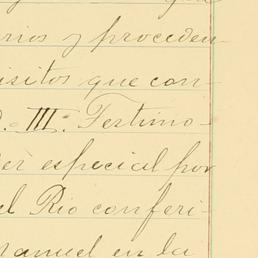 rios y proceden-
isitos que con-
III. Testimo-
er especial por
el Rio conferi-
anuel en la